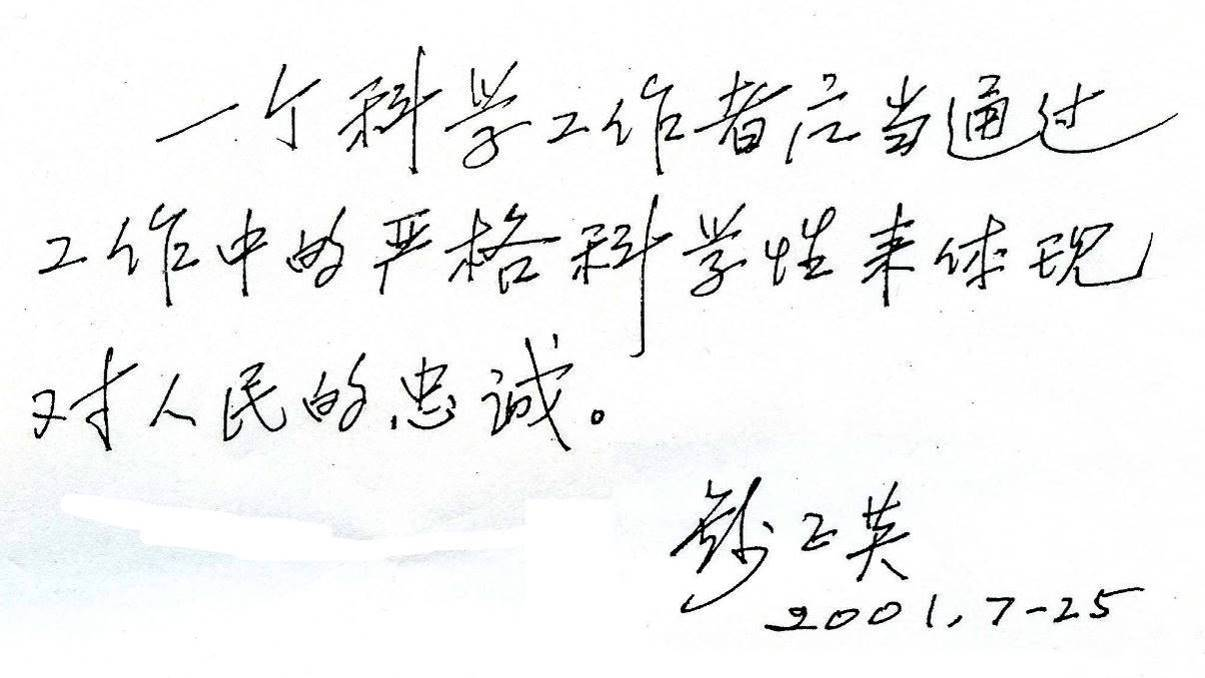 一个科学工作者应当通过
工作中的严格科学性来体现
对人民的忠诚。
钱正英
2001.7-25